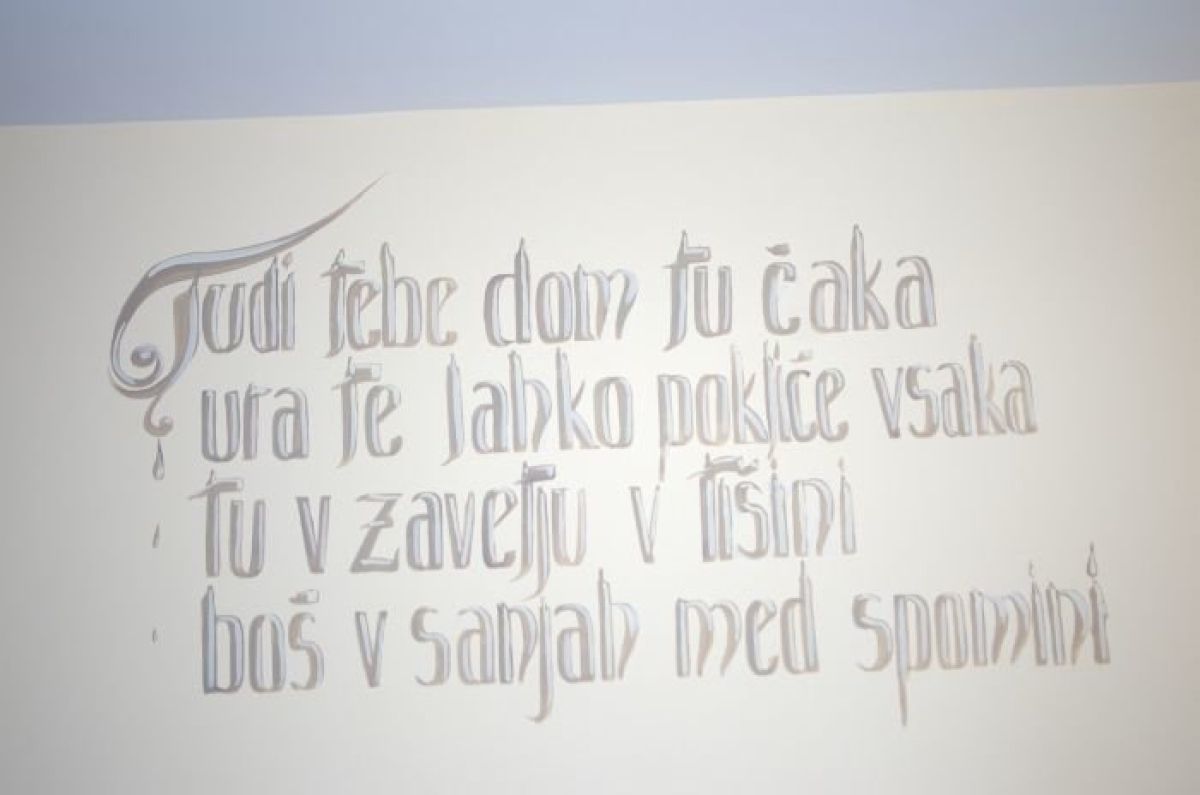 Tudi tebe dom tu čaka
ura te lahko pokliče vsaka
tu v zavetju v tišini
boš v sanjah med spomini